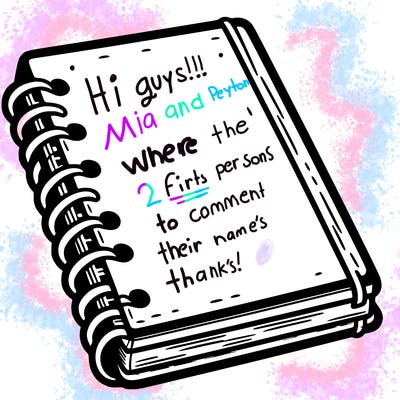 Hi guys!!!
Mia and Peyton
where the
2 firts persons
to comment
their name's
thank's!